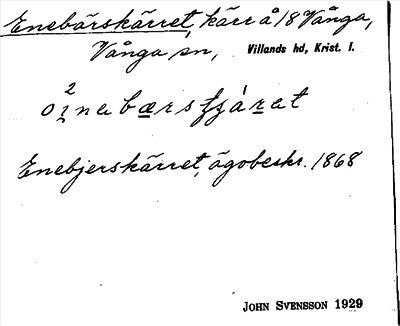 Enebärskärret, kärr å 18 Vånga,
Vånga sn, Villands hd, Krist. l.
2
Enebjerskärret, ägobeskr. 1868
JOHN SVENSSON 1929